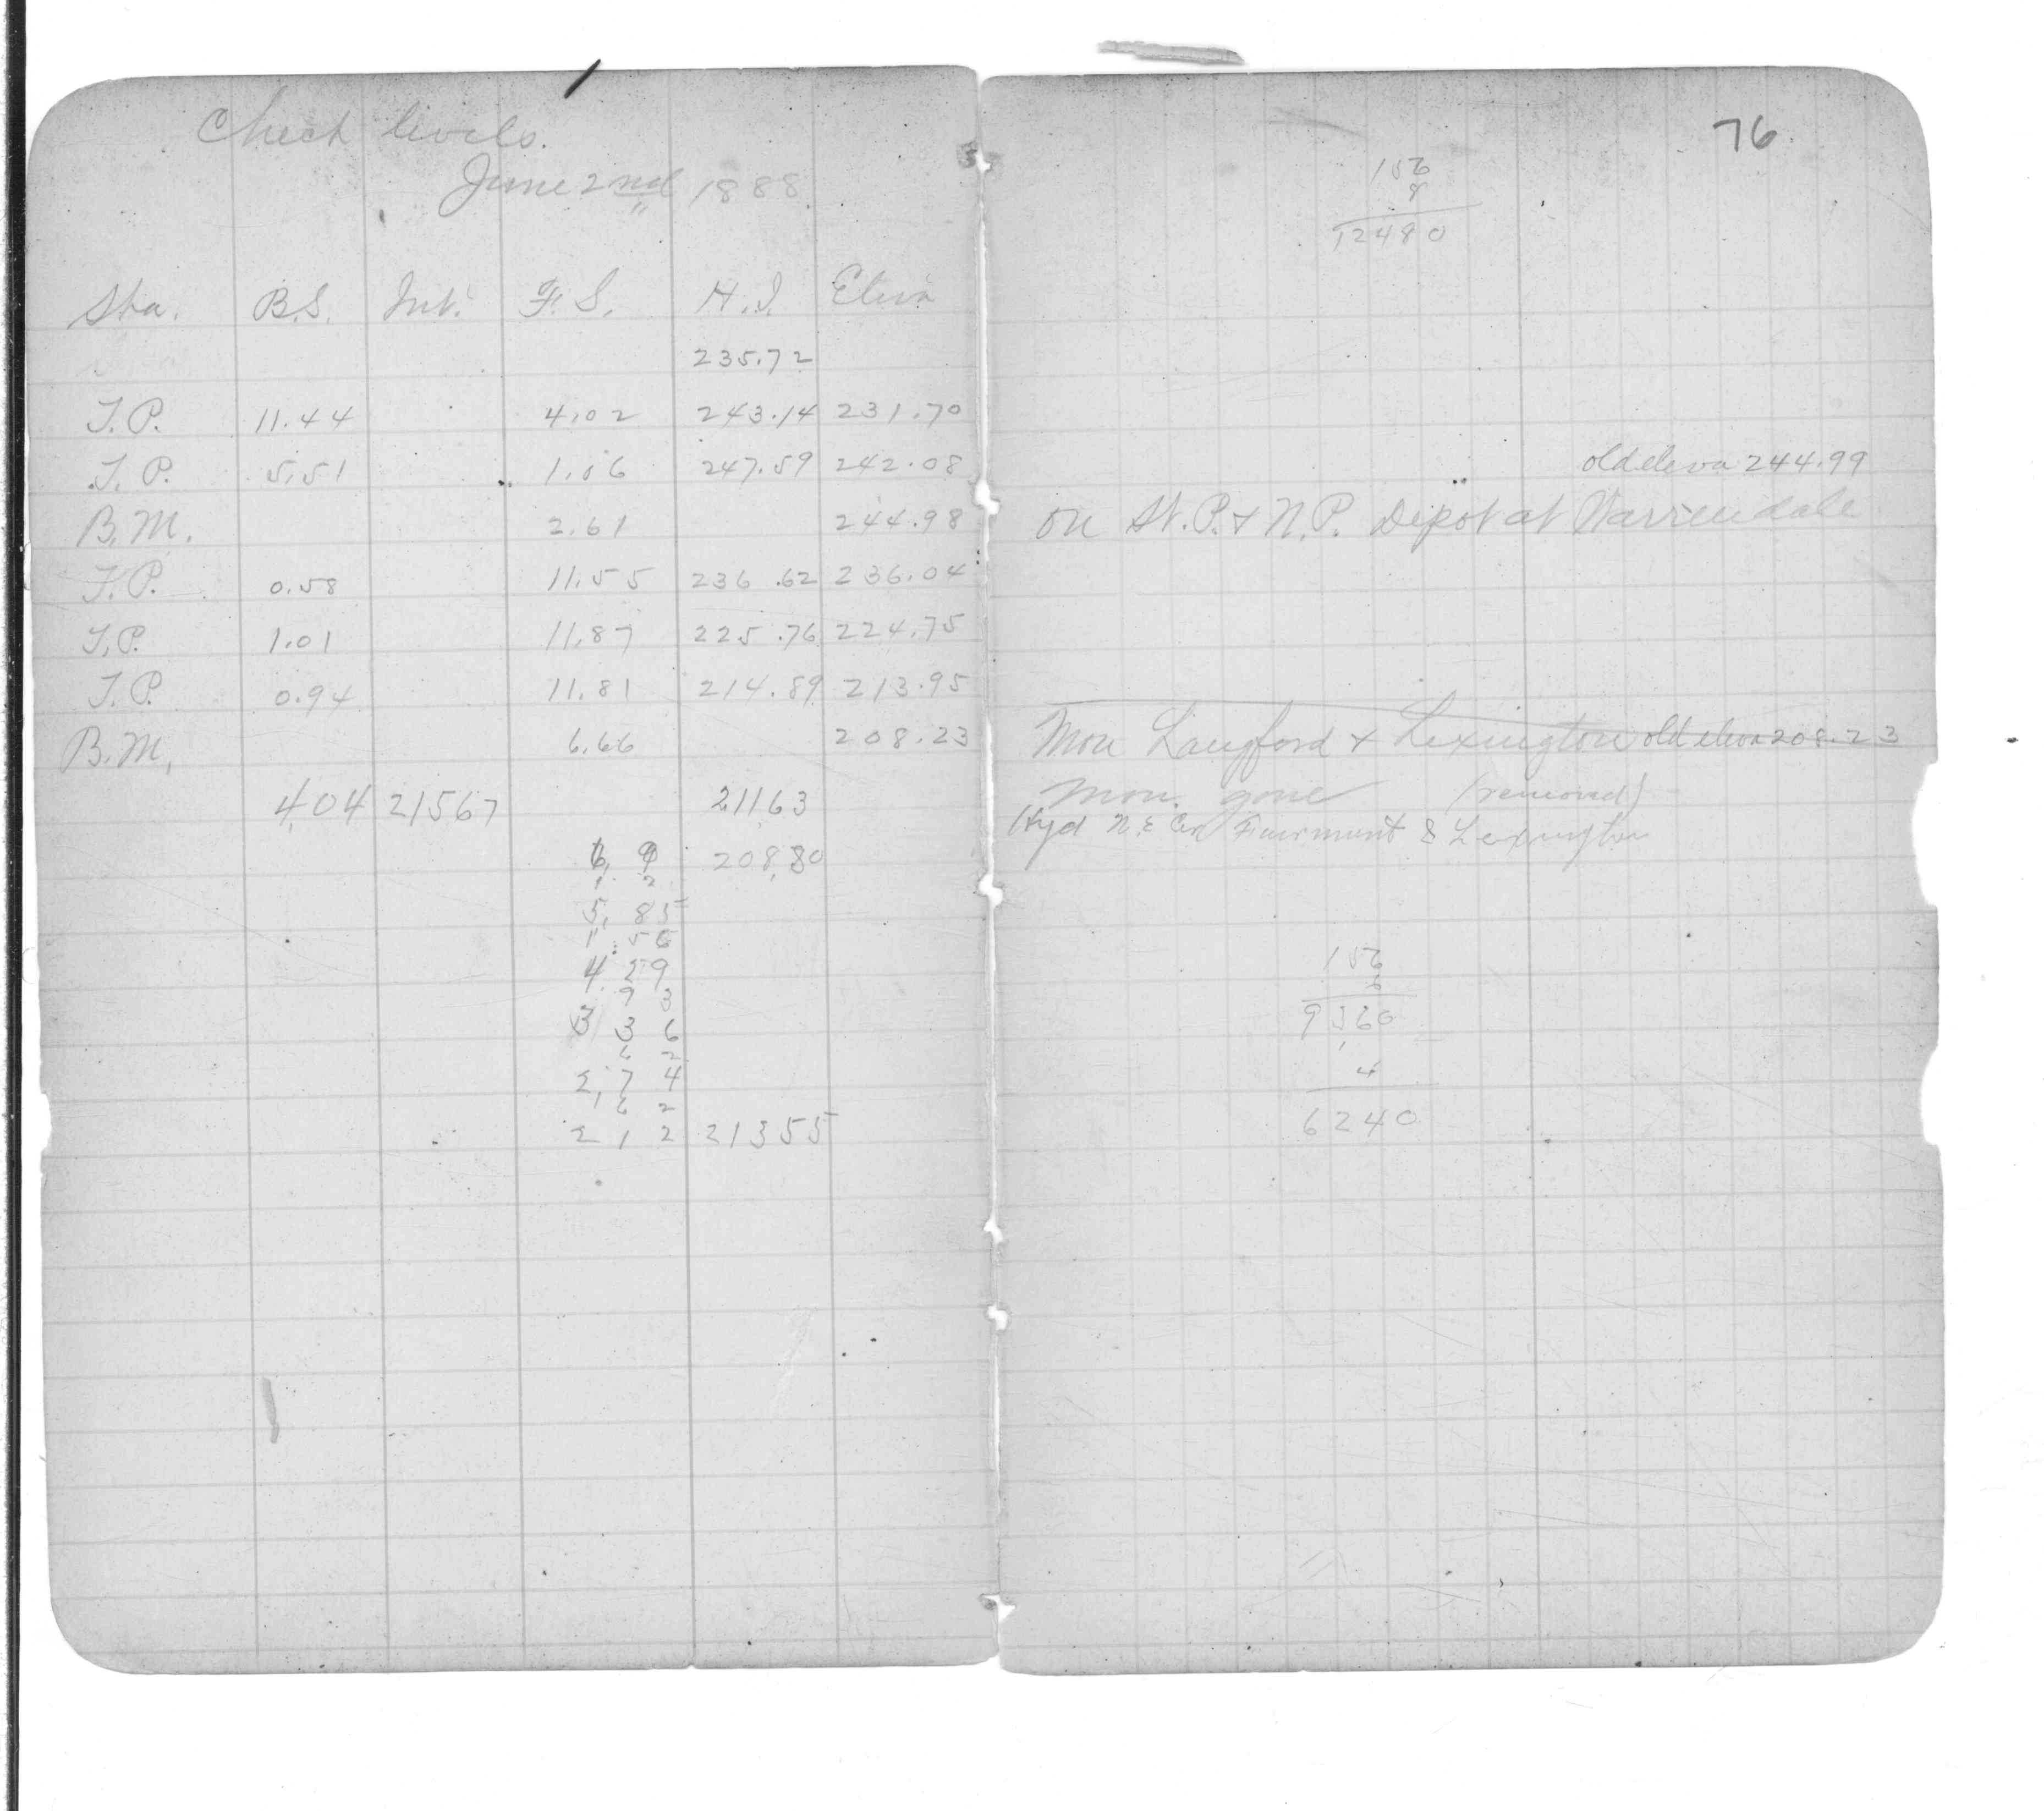 Check levels.
June 2nd 1888
Sta. B.S. Int. F.S. H.I. Eleva
235.72
T.P. 11.44 4.02 243.14 231.70
T.P. 5.51 1.06 247.59 242.08
B.M. 2.61 244.98
T.P. 0.58 11.55 236.62 236.04
T.P. 1.01 11.87 225.76 224.75
T.P. 0.94 11.81 214.89 213.95
B.M. 6.66 208.23
4.04 21567 211.63
208.80
5.85
1.56
4.29
9 3
3 3 6
6 2
2.7 4
6 2
2 1 2 21355
76
156
8
12480
old eleva 244.99
on St. P. & N.P. Depot at Warrendale
Mon Langford & Lexington old eleva 208.23
Mon. gone (removed)
Hyd N.E Cor Fairmount & Lexington
156
6
9360
4
6240